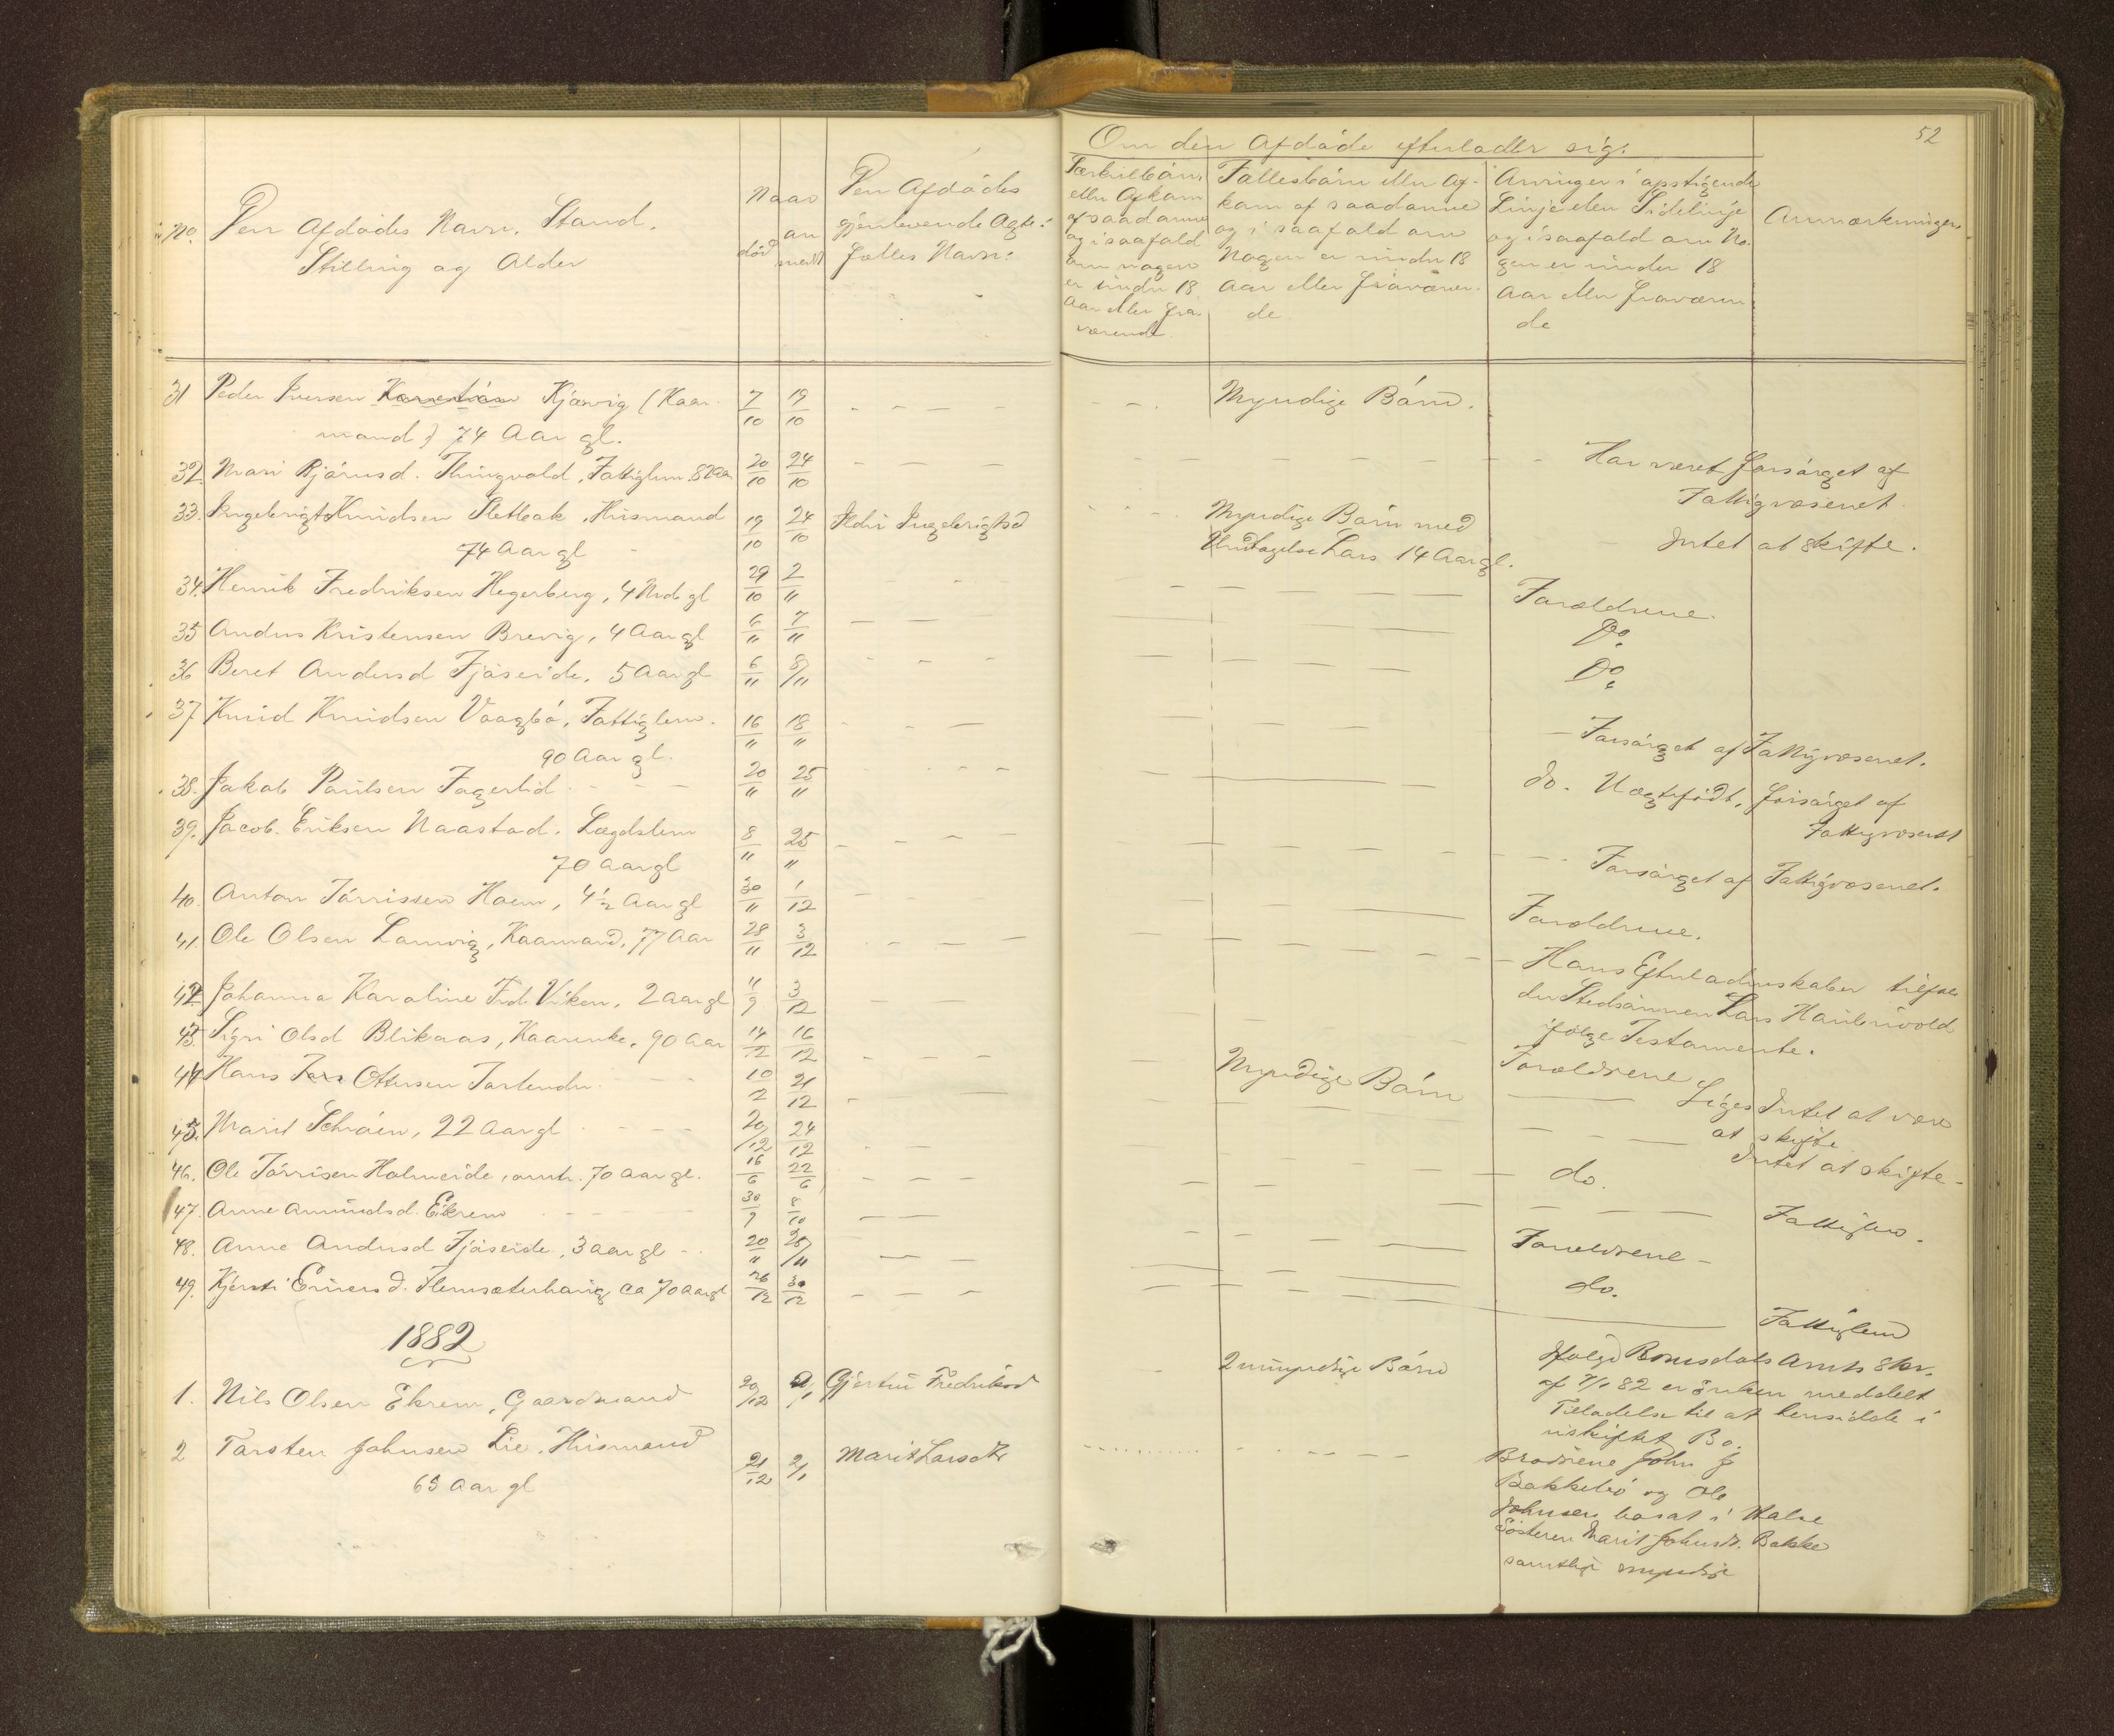 52
Om den Afdøde efterlader sig:
No.
Den Afdødes Navn, Stand,
Stilling og Alder
Naar
død
an
meldt
Den Afdødes
gjenlevende Ægte:
fælles Navn:
Særkulbørn
eller Afkom
af saadanne
og i saafald
om nogen
er under 18
Aar eller fra
værende
Fællesbørn eller Af-
kom af saadanne
og i saafald om
Nogen er under 18
Aar eller fraværen-
de
Arvinger i opstigende
Linje eller Sidelinje
og i saafald om No-
gen er under 18
Aar eller fraværen
de
Anmærkninger
31 Peder Iversen Kjørvig (Kaar- 7/10 19/10 Myndige Børn.
mand) 74 Aar gl.
32. Mari Bjørnsd. Thingvold, Fattiglem 82 Aar 20/10 24/10 Har været forsørget af
Fattigvæsenet
33. Ingebrigt Knudsen Sletbak, Husmand 19/10 24/10 Ildri Ingebrigtsd Myndige Børn med
74 Aar gl Undtagelse Lars 14 Aar gl. Intet at skifte.
34. Henrik Fredriksen Hegerberg, 4 Mdr gl 29/10 2/11 Forældrene.
35 Anders Kristensen Brevig, 4 Aar gl 6/11 7/11 Do.
36 Beret Andersd Fjøseide, 5 Aar gl 6/11 8/11 Do
37 Knud Knudsen Vaagbø, Fattiglem. 16/11 18/11 Forsørget af Fattigvæsenet.
90 Aar gl.
38. Jakob Paulsen Fagerlid 20/11 25/11 do. Uægtefødt, forsørget af
Fattigvæsenet
39. Jacob Eriksen Naastad, Lægdslem 8/11 25/11 Forsørget af Fattigvæsenet.
70 Aar gl
40. Anton Tørrissen Hoem, 4½ Aar gl 30/11 1/12 Forældrene.
41. Ole Olsen Lamvig, Kaarmand, 77 Aar 28/11 3/12 Hans Efterladenskaber tilfal-
der Stedsønnen Lars
ifølge Testamente.
42 Johanna Karoline Fred. Viken, 2 Aar gl 11/9 3/12 Forældrene
43. Sigri Olsd Blikaas, Kaarenke, 90 Aar 14/12 16/12 Myndige Børn Siges Intet at være
at skifte
44 Hans Ottersen 10/2 21/12 Intet at skifte
45. Marit Schrøen, 22 Aar gl 20/12 24/12 do.
46. Ole Tørrisen Holmeide, omtr. 70 Aar gl. 16/6 22/6 Fattiglem.
47. Anne Amundsd. Ekrem 30/9 8/10 Forældrene
48. Anne Andersd Fjøseide, 3 Aar gl 20/11 25/11 do.
49. Kjersti Einersd. ca 70 Aar gl 26/12 30/12 Fattiglem
1882
1. Nils Olsen Ekrem, Gaardmand 20/12 Gjertru Fredriksd 2 umyndige Børn Ifølge Romsdals Amts Skr.
af 7/1 82 er Enken meddelt
Tilladelse til at hensidde i
uskiftet Bo.
2 Torsten Johnsen Lie, Husmand 21/12 2/1 Marit Larsdtr Brødrene John J
65 Aar gl
Bakkebø og Ole
Johnsen bosat i Halse
Søsteren Marit Johnsdr. Bakke
samtlige myndige